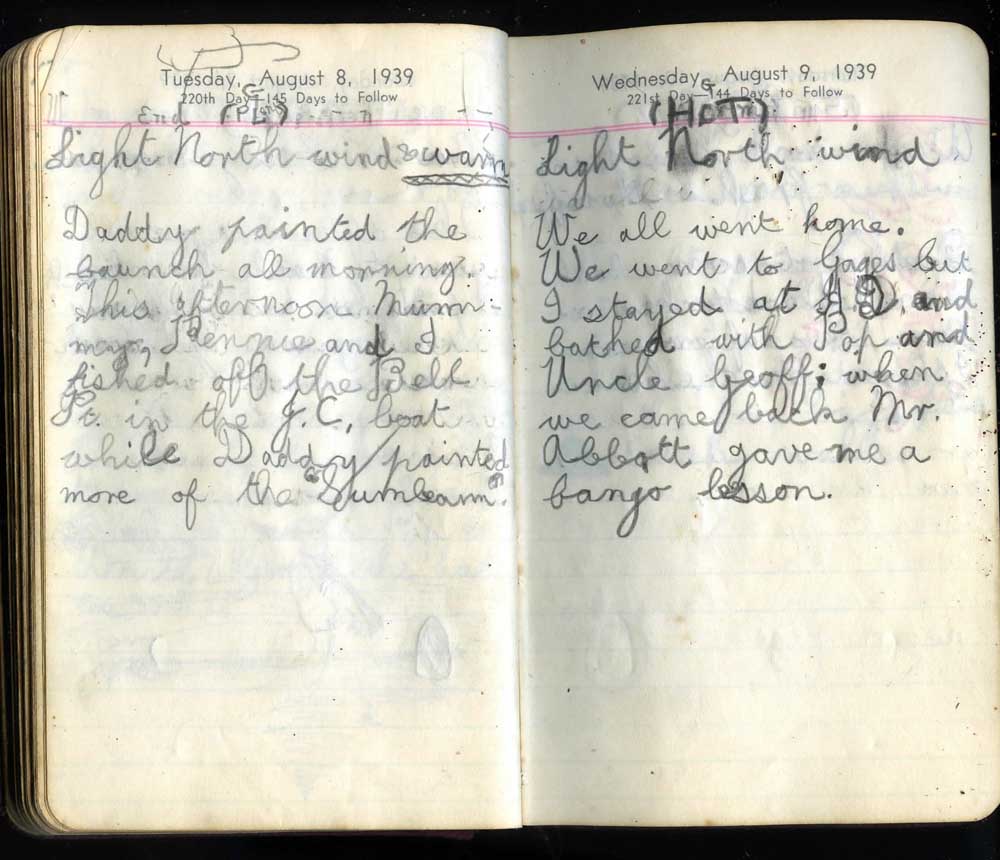 Tuesday, August 8, 1939
220th Day—145 Days to Follow
End
Light North wind & warm
Daddy painted the
launch all morning.
This afternoon Mum-
my, Rennie and I
fished off the Belt
Pt. in the J.C. boat
while Daddy painted
more of the "Sunbeam".
Wednesday, August 9, 1939
221st Day—144 Days to Follow
(HOT)
Light North wind
We all went home.
We went to Gages but
I stayed at and
bathed with Pop and
Uncle Geoff; when
we came back Mr.
Abbott gave me a
banjo lesson.